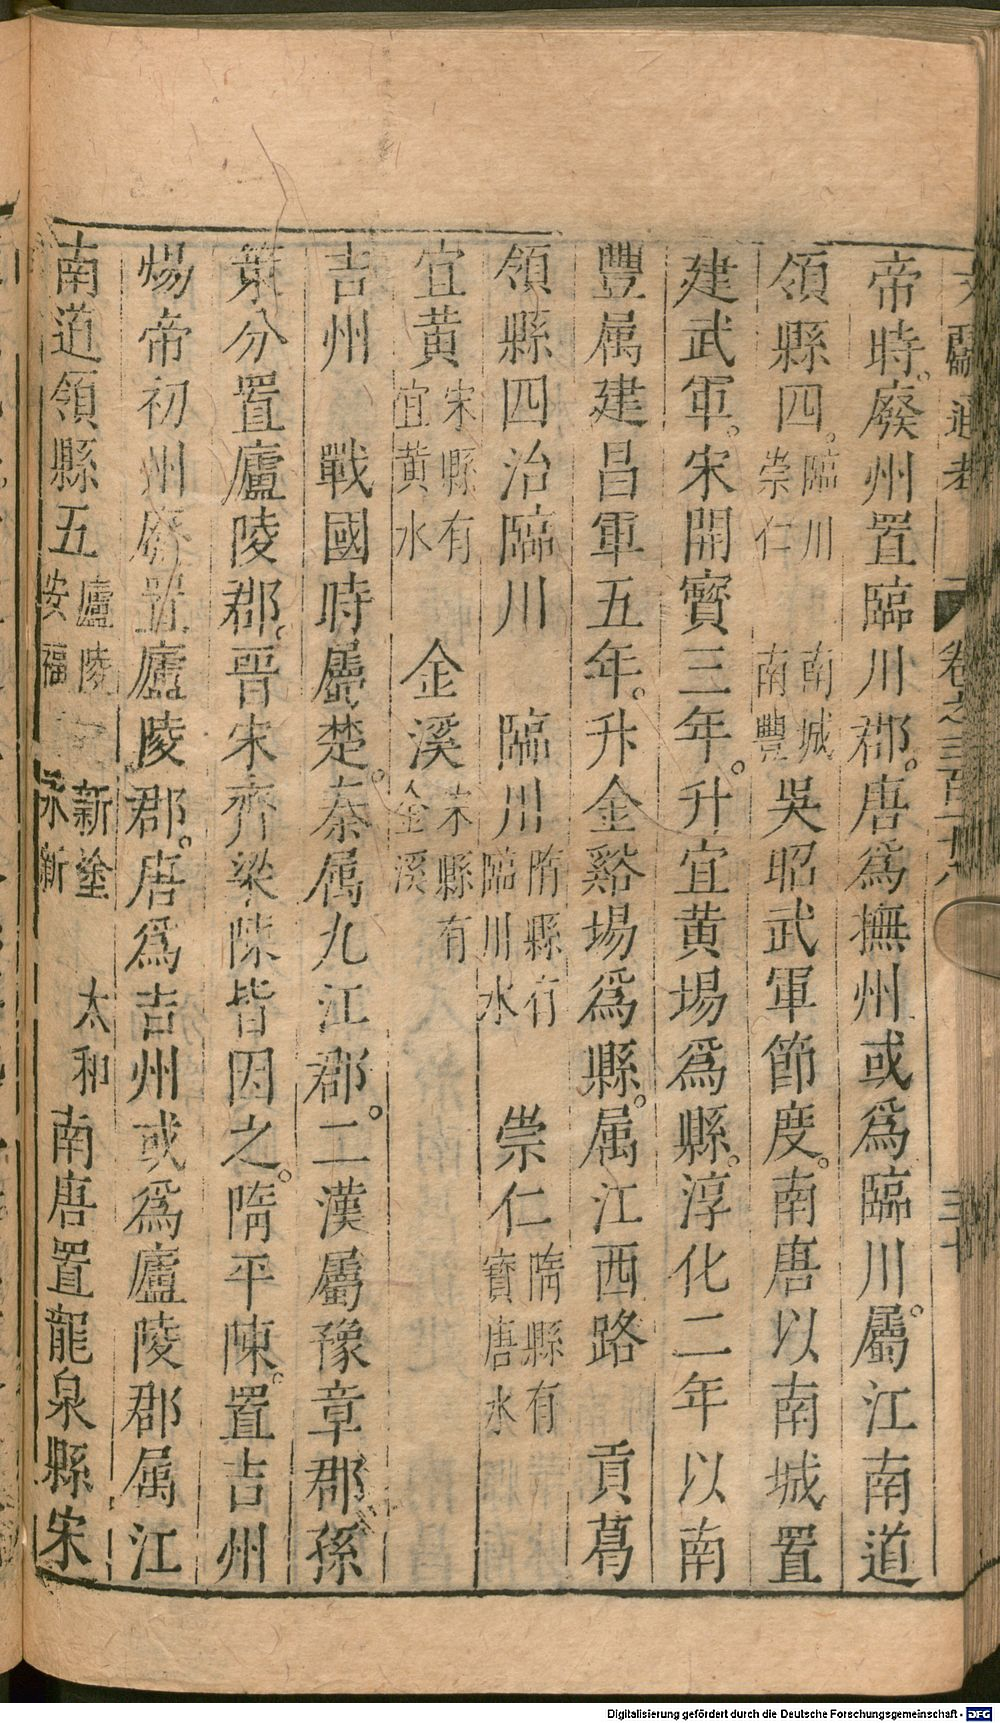 文獻通考 卷之三百十八 三十
帝時。廢州置臨川郡。唐爲撫州或爲臨川。屬江南道
領縣四。臨川 崇仁 南城 南豐 吳昭武軍節度。南唐以南城置
建武軍。宋開寶三年。升宜黃場爲縣。淳化二年以南
豐属建昌軍五年。升金谿場爲縣。属江西路 貢葛
領縣四治臨川 臨川 隋縣有臨川水 崇仁 隋縣有寶唐水
宜黃 宋縣有宜黃水 金溪 宋縣有金溪
吉州 戰國時屬楚。秦属九江郡。二漢屬豫章郡孫
策分置廬陵郡。晋宋齊梁陳皆因之。隋平陳。置吉州
煬帝初州廢置廬陵郡。唐爲吉州或爲廬陵郡属江
南道領縣五 廬陵 安福 新塗 永新 太和 南唐置龍泉縣宋
Digitalisierung gefördert durch die Deutsche Forschungsgemeinschaft - DFG